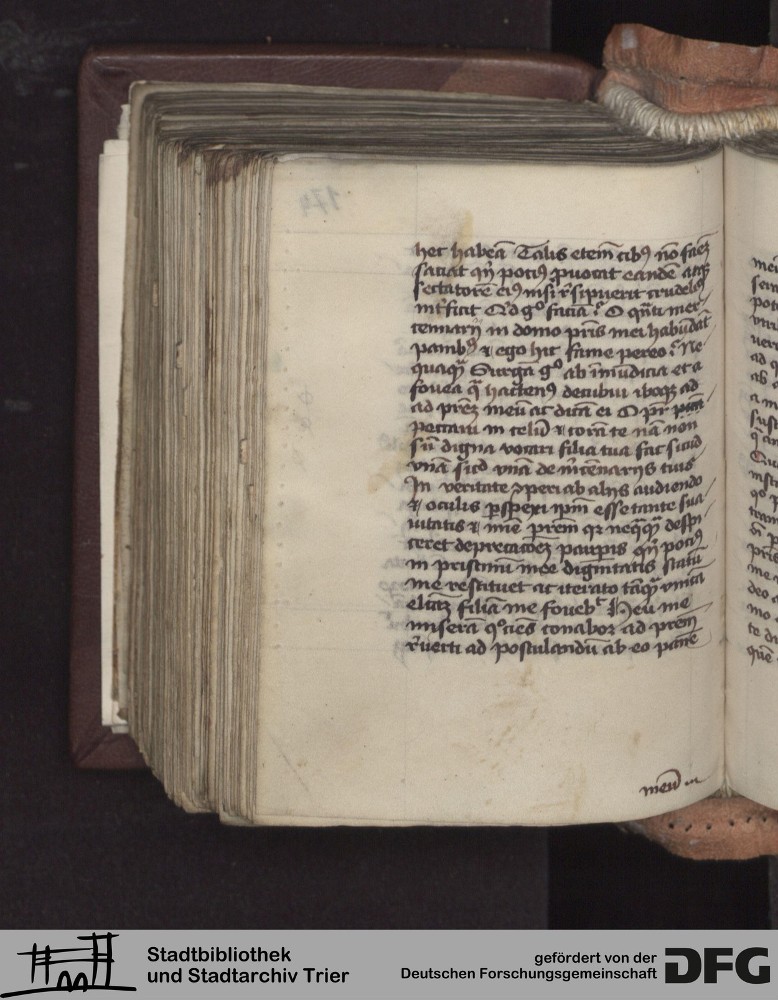 174
het habeā Talis etem̄ cibꝰ nō
satiat qn̄ potiꝰ ꝓuocat eandē atqꝫ
sectatorē eiꝰ nisi r̄sipuerit crudelit᷒
int̄ficit Qd gͦ faciā ? O qn̄ti mer-
cenarij in domo pr̄is mei habūdāt
panibꝰ ⁊ ego hic fame pereo ? Ne-
quaqȝ Surgā gͦ ab īmūdicia et a
fouea q̄ hactenꝰ decubui iboqꝫ ad
ad prēȝ meū ac dicā ei O pr̄
peccaui in celū ⁊ corā te nā non
sū digna vocari filia tua fac sicud
vnā sicd vnā de m̄cēnarijs tuis
In veritate ꝯperi ab alijs audiendo
⁊ oculis ꝑspexi ip̄m esse tante sua-
uitatis ⁊ mīe prēm qꝫ neqȝqȝ despi-
ceret deprecacōeȝ paupis qn̄ potiꝰ
in pristinū mee dignitatis statū
me restituet ac iterato tāqȝ vnica
filiā me fouebᵗ Heu me
miserā qͦciēs conabor ad prēm
r̄uerti ad postulandū ab eo panē
meū
Stadtbibliothek
und Stadtarchiv Trier
gefördert von der
Deutschen Forschungsgemeinschaft
DFG